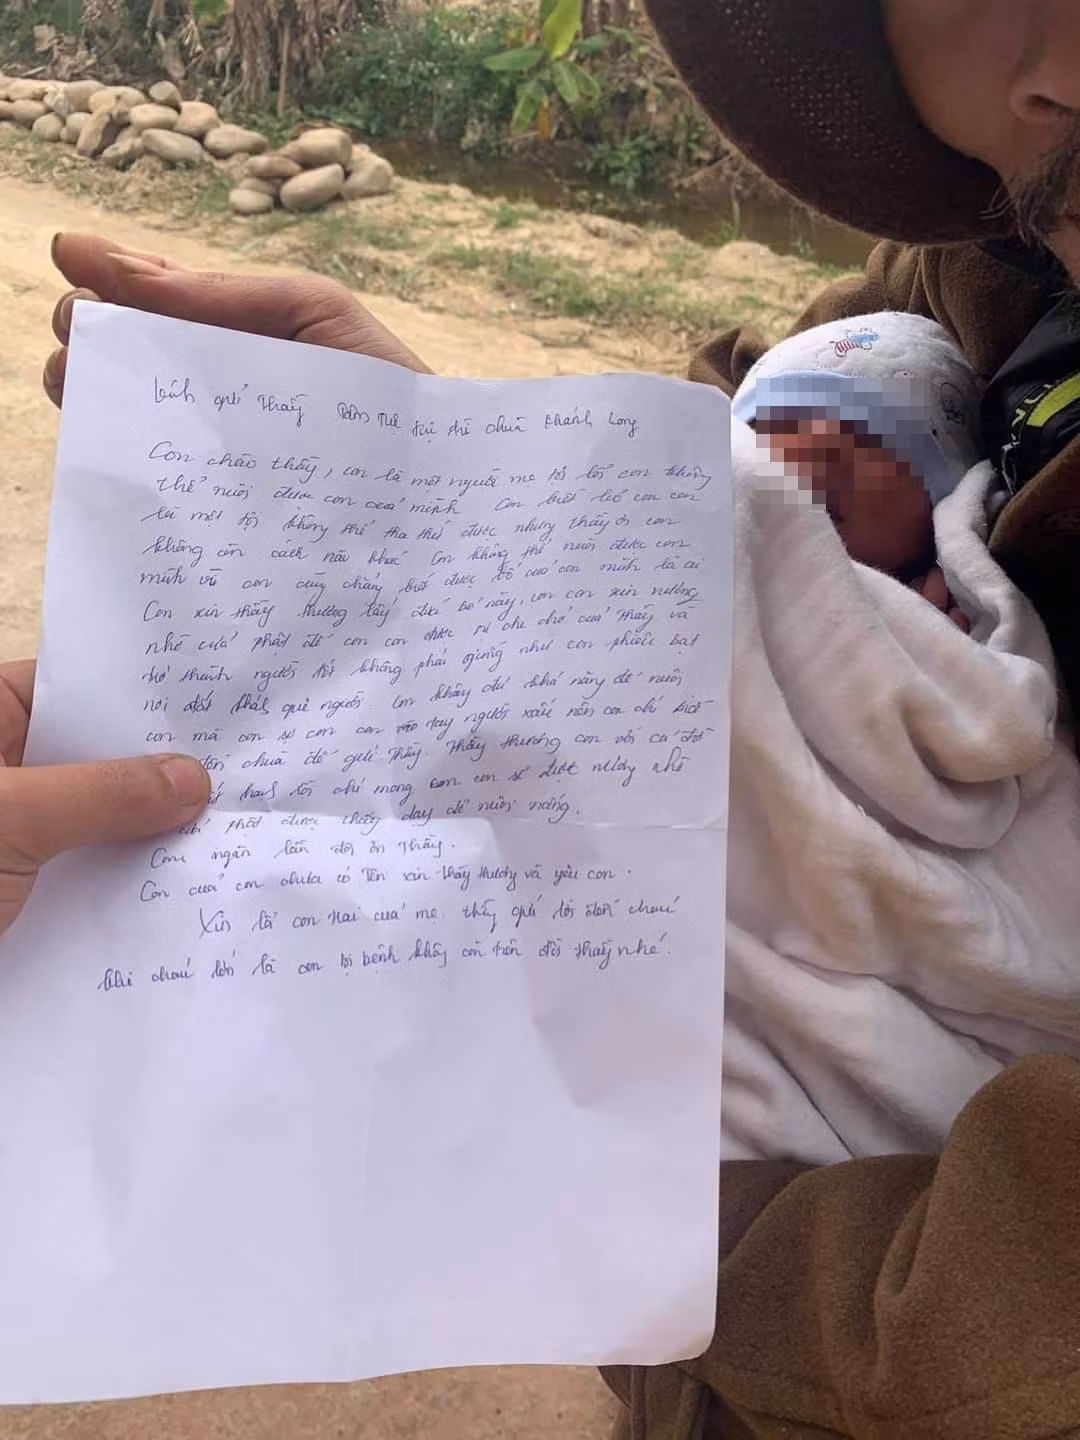 kính gửi thầy Tâm Tuệ sư trụ trì chùa khánh Long
Con chào thầy, con là một người mẹ tội lỗi con không
thể nuôi được con của mình Con biết bỏ con con
là một tội không thể tha thứ được nhưng thầy ơi con
không còn cách nào khác Con không thể nuôi được con
mình vì con cũng chẳng biết được bố của con mình là ai
Con xin thầy thương lấy đứa bé này, con con xin nương
nhờ cửa phật để con con được sự che chở của thầy và
trở thành người tốt không phải giống như con phiêu bạt
nơi đất khác quê người. Con không đủ khả năng để nuôi
con mà con sợ con con vào tay người xấu nên con chỉ biết
đến chùa để gửi thầy. Thầy thương con với cả đời
tội lỗi chỉ mong con con sẽ được nương nhờ
cửa phật được thầy dạy dỗ nuôi nấng.
Con ngàn lần đội ơn thầy.
Con của con chưa có tên xin thầy thương và yêu con.
Xin lỗi con trai của mẹ. thầy gửi lời đến cháu
khi cháu lớn là con bị bệnh không còn trên đời thầy nhé.